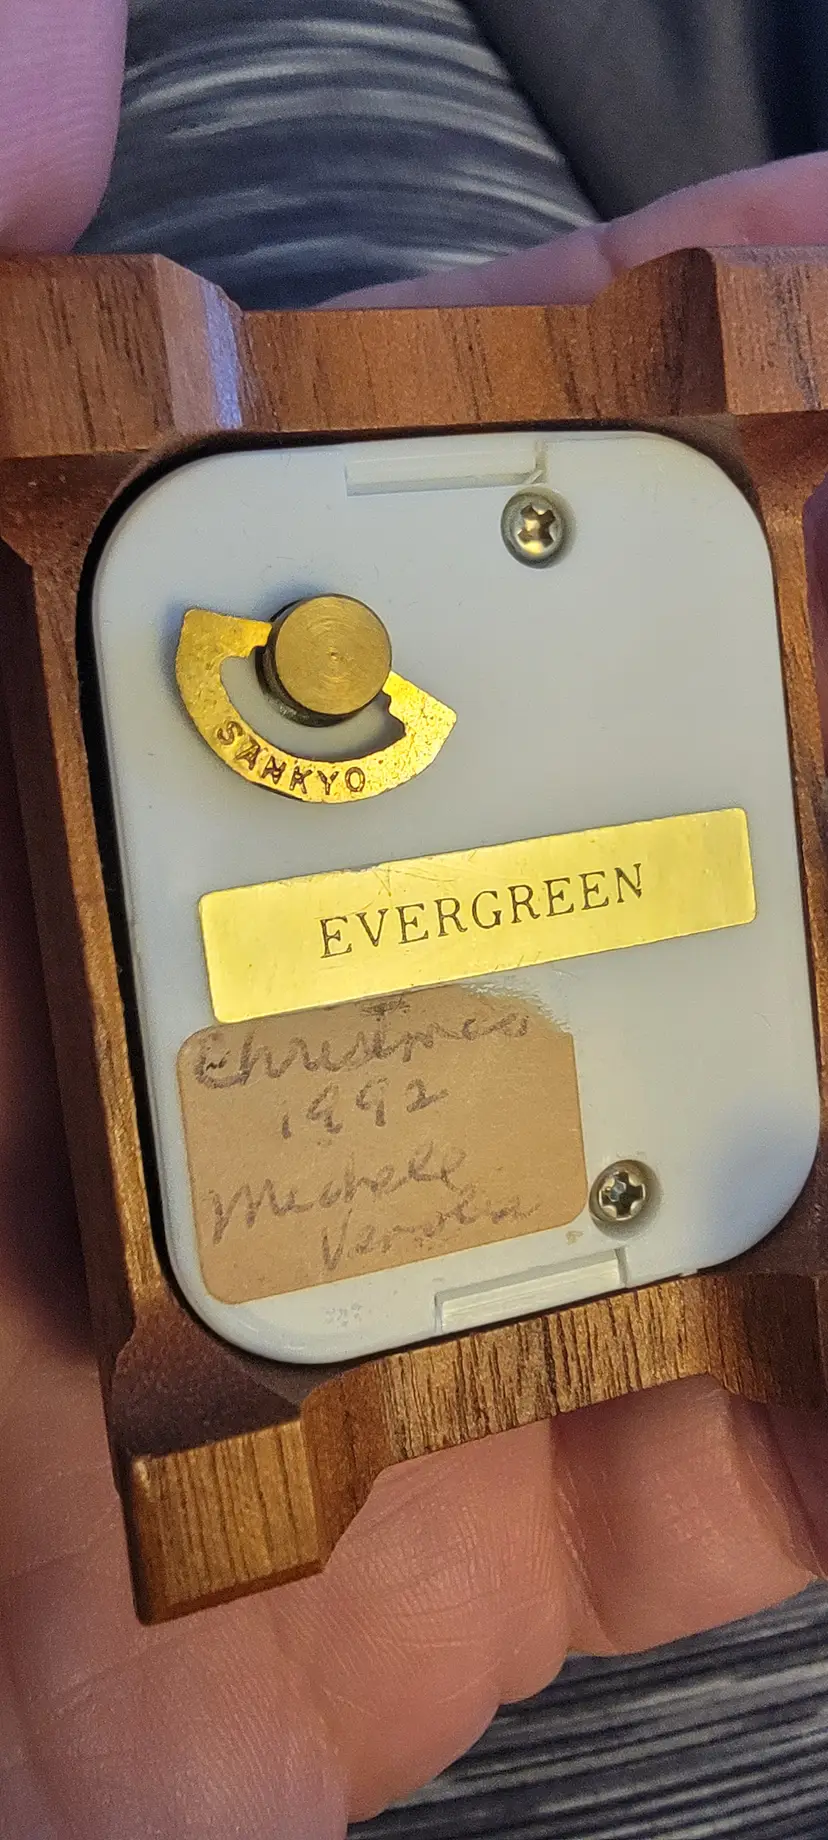 SANKYO
EVERGREEN
Christmas
1992
Michele